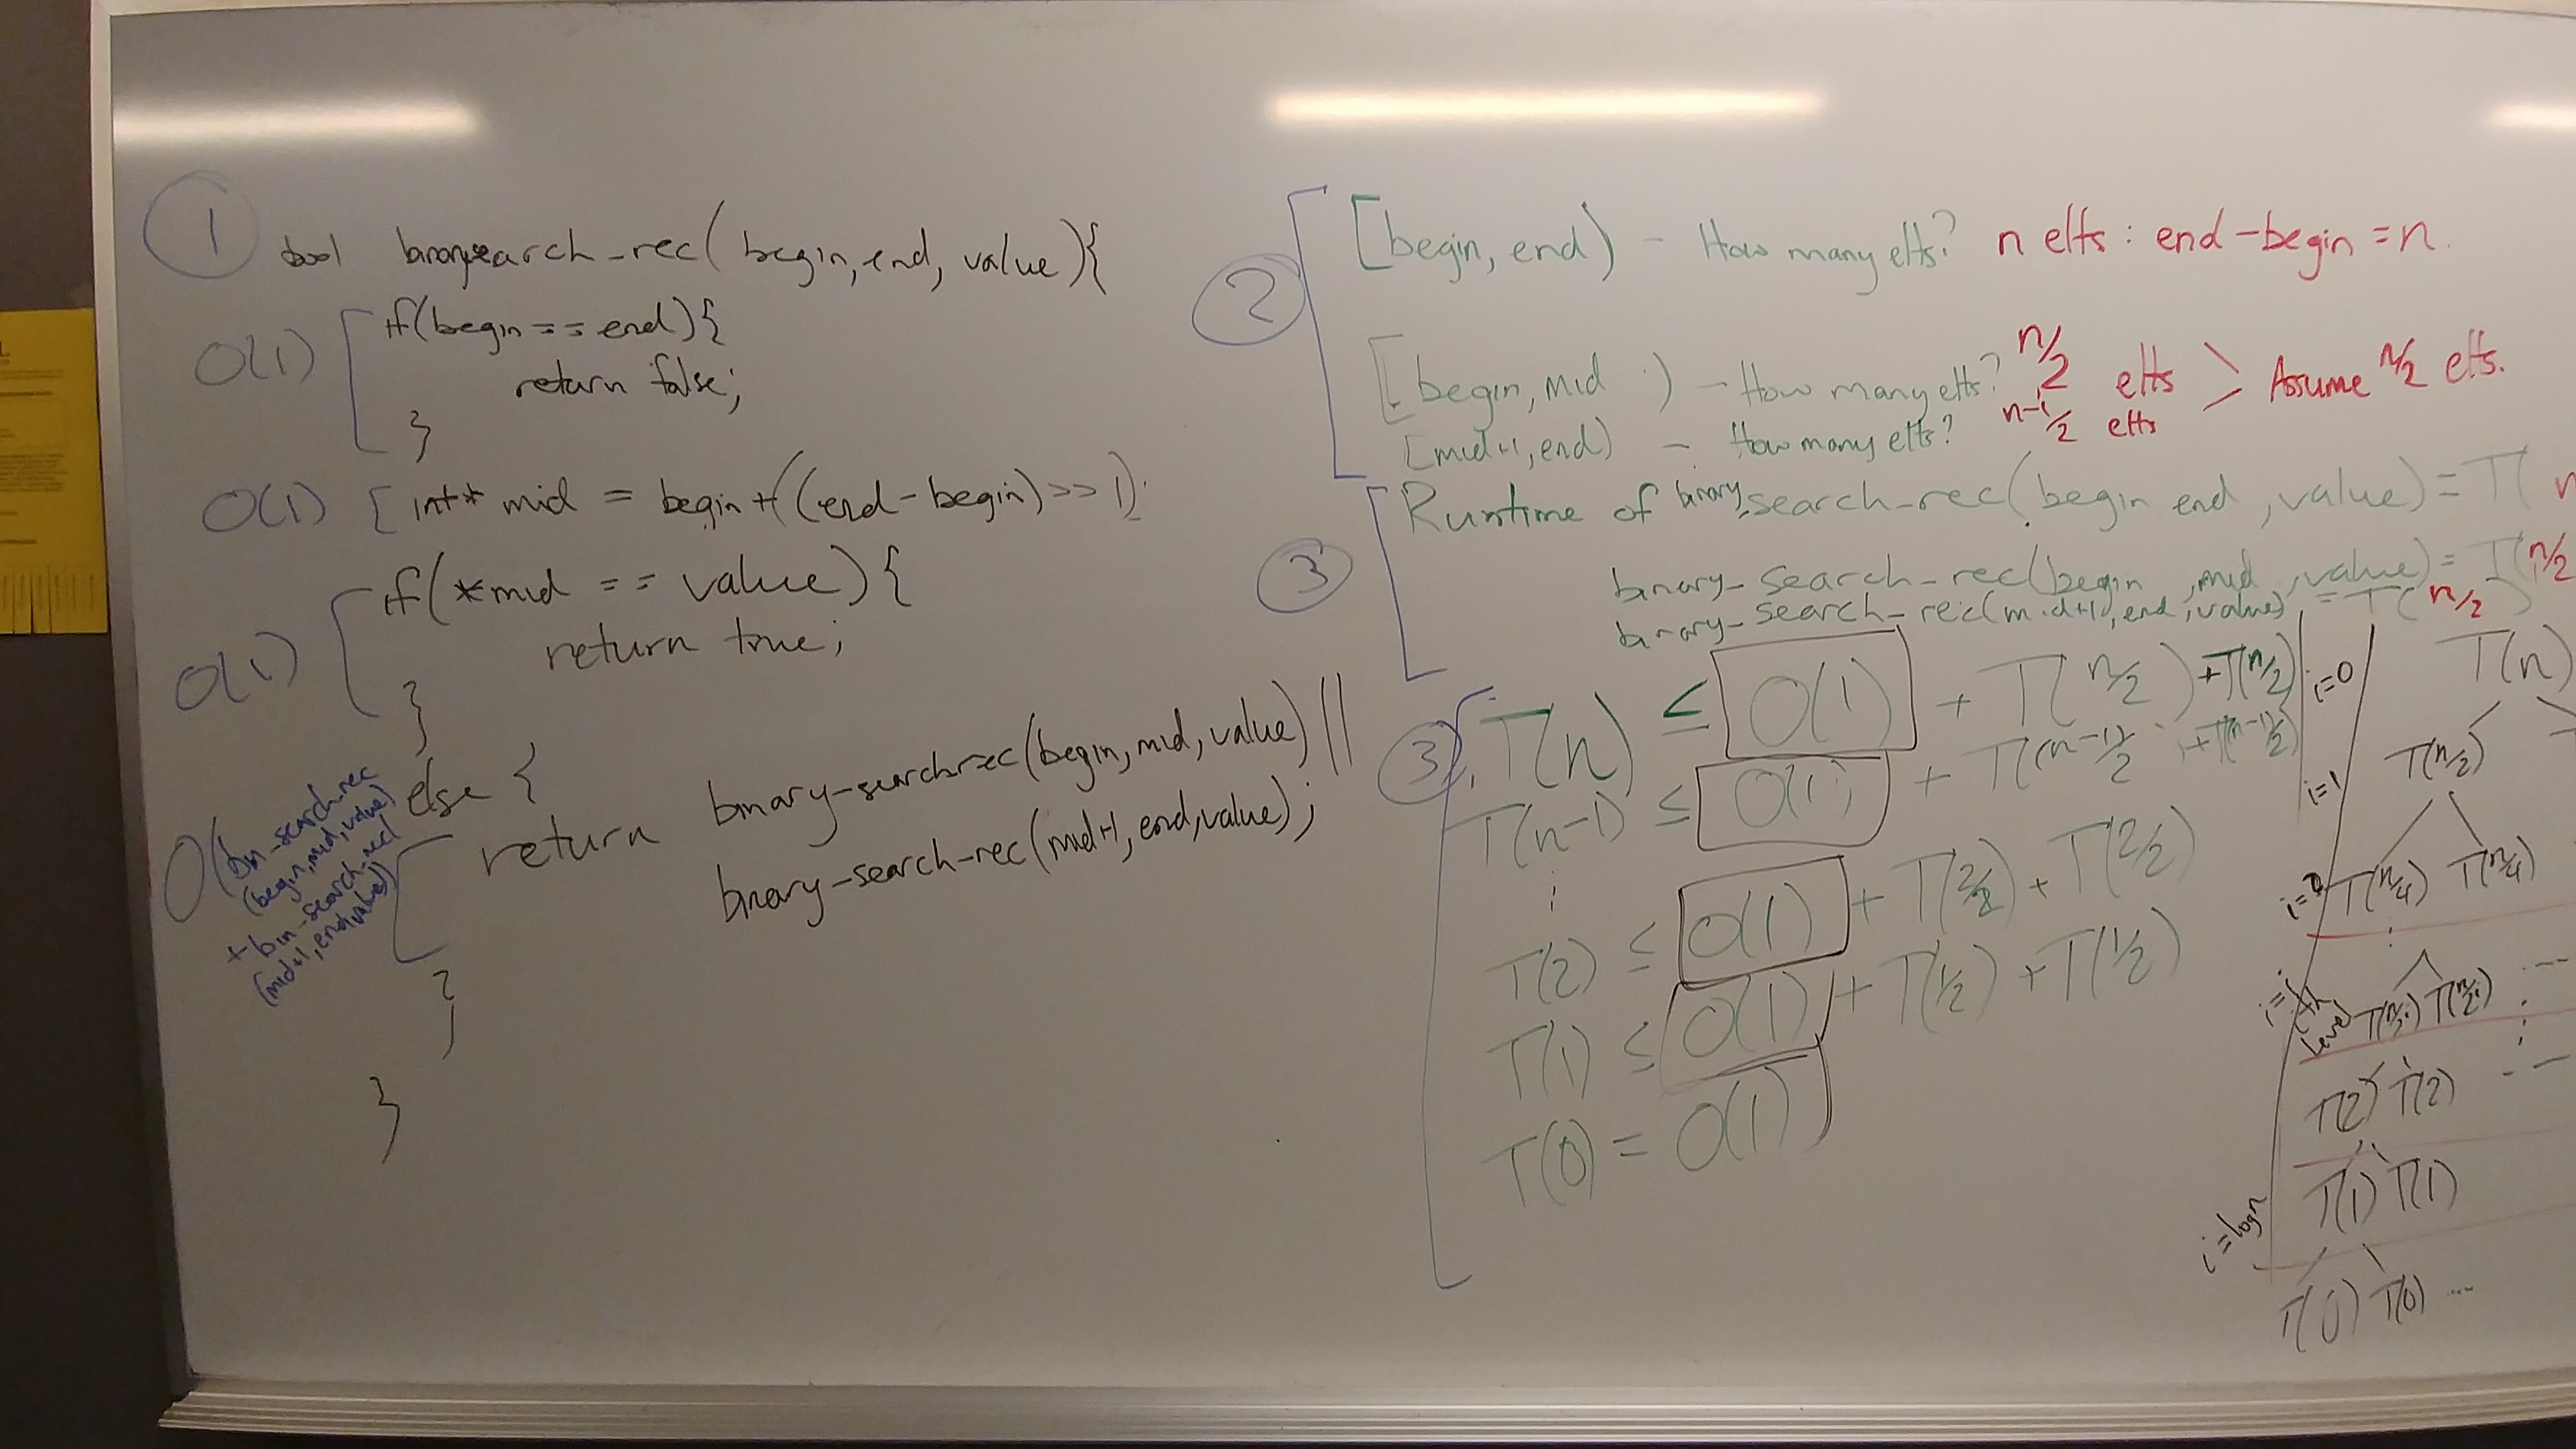 1
bool binarysearch_rec(begin, end, value){
O(1) [ if(begin == end){
return false;
}
O(1) [ int* mid = begin + ((end - begin) >> 1);
O(1) [ if(*mid == value){
return true;
}
else {
return binary-search-rec(begin, mid, value) ||
binary-search-rec(mid+1, end, value);
}
}
O(bin-search-rec
(begin, mid, value)
+ bin-search-rec
(mid+1, end, value))
2
[begin, end) - How many elts? n elts : end - begin = n.
[begin, mid ) - How many elts? n/2 elts > Assume n/2 elts.
[mid+1, end) - How many elts? n-1/2 elts
3
Runtime of binary-search-rec(begin end, value) = T( n
binary-search-rec(begin, mid, value) = T(n/2
binary-search-rec(mid+1, end, value) = T(n/2)
3
T(n) ≤ O(1) + T(n/2) + T(n/2)
T(n-1) ≤ O(1) + T(n-1)/2 + T(n-1)/2
⋮
T(2) ≤ O(1) + T(2/2) + T(2/2)
T(1) ≤ O(1) + T(1/2) + T(1/2)
T(0) = O(1)
i=0 T(n)
i=1 T(n/2)
i=2 T(n/4) T(n/4)
⋮
i=ith level T(n/2i) T(n/2i) ...
T(2) T(2) ...
T(1) T(1)
i=logn
T(0) T(0) ...